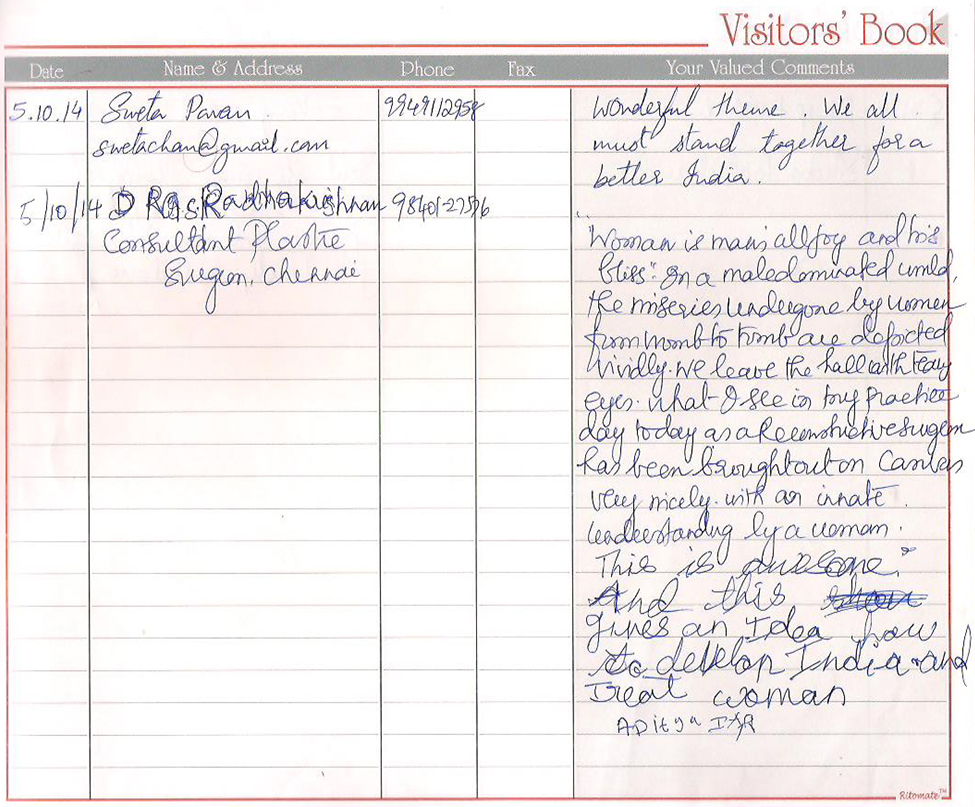 Visitors' Book
Date Name & Address Phone Fax Your Valued Comments
5.10.14 Sweta Pavan 9949112958 Wonderful theme. We all
swetachan@gmail.com must stand together for a
better India.
5/10/14 Radhakrishnan 98401-27576
Consultant Plastic
Surgeon, Chennai
"Woman is man's all joy and his
bliss". In a male dominated world,
the miseries undergone by women
from womb to tomb are depicted
vividly. We leave the hall with teary
eyes. What I see in my practice
day today as a Reconstructive surgeon
has been brought out on Canvas
very nicely. with an innate
understanding by a woman.
This is awesome.
And this
gives an Idea how
to develop India and
Treat woman
Aditya
Ritomate™